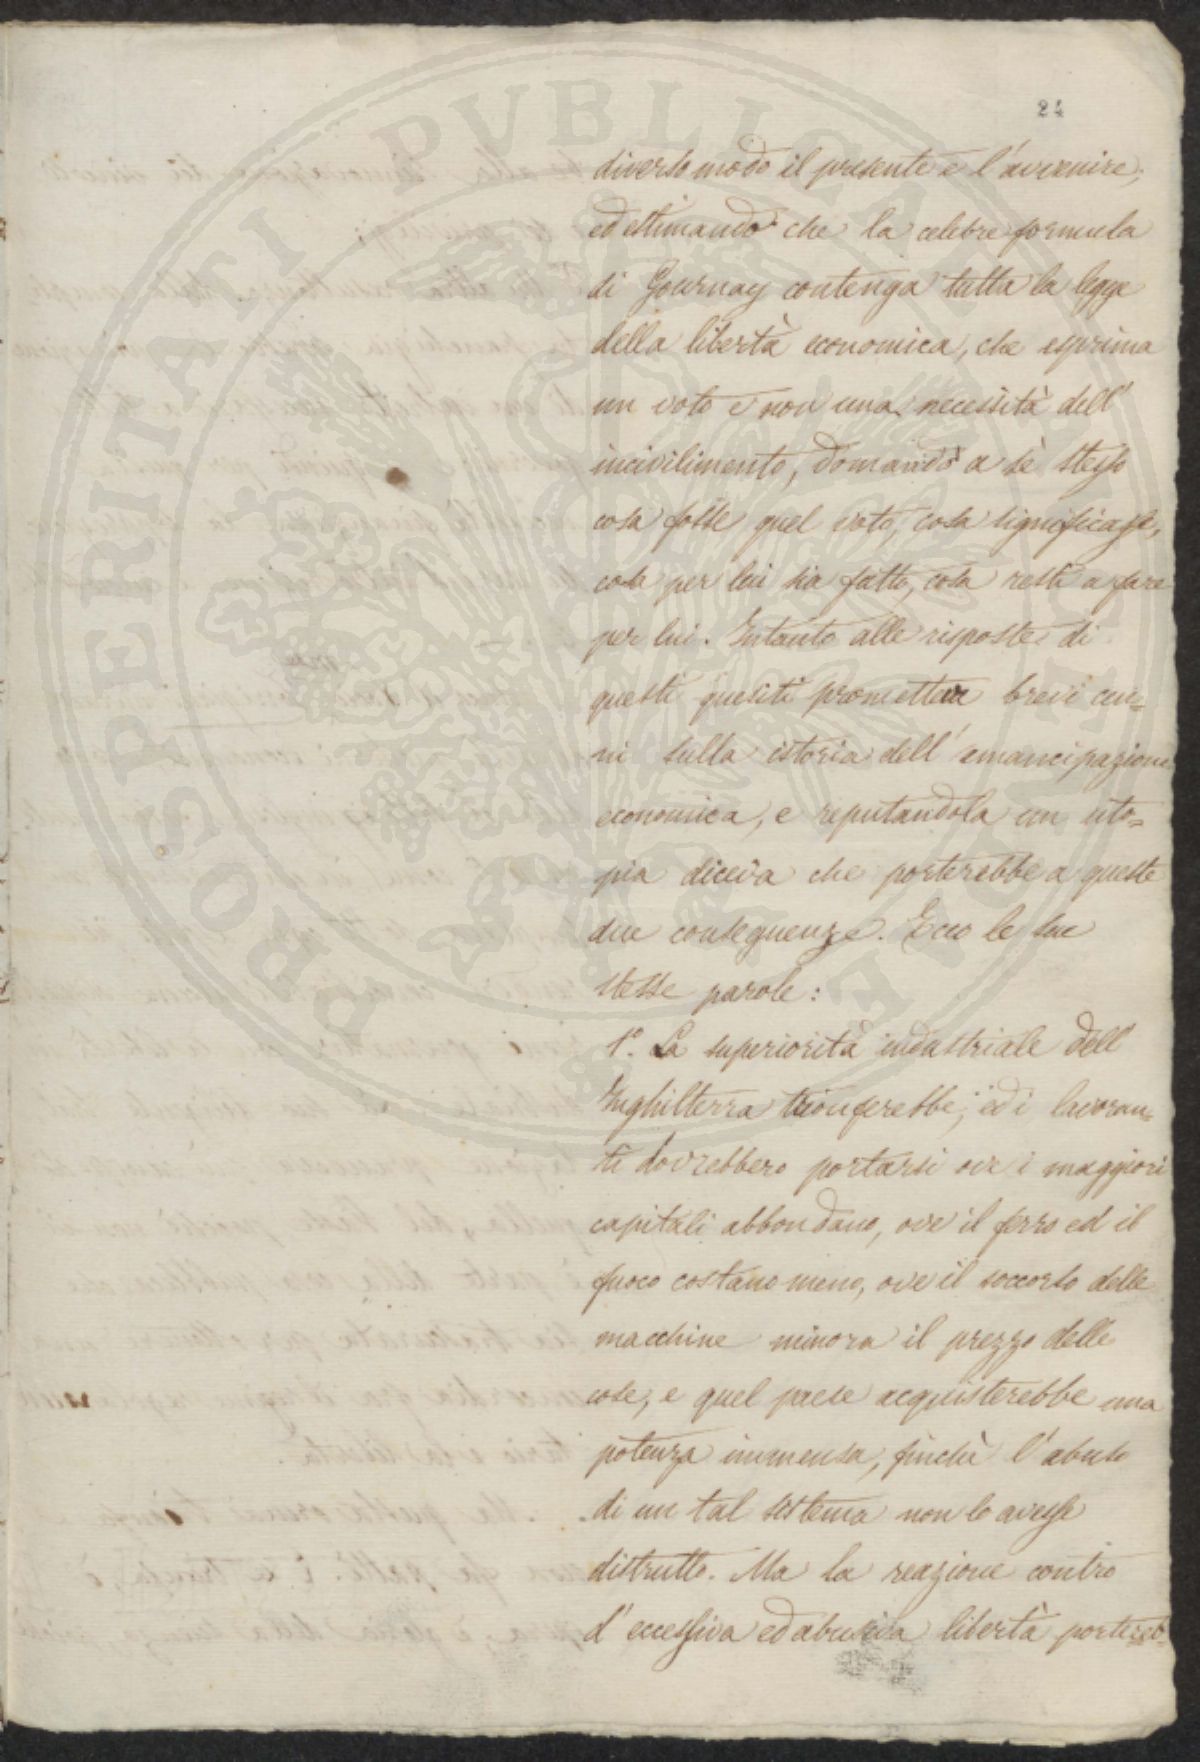 PROSPERITATI PVBLICAE
24
diverso modo il presente e l'avvenire,
ed estimando che la celebre formula
di Gournay contenga tutta la legge
della libertà economica, che esprima
un voto e non una necessità dell'
incivilimento, domandò a sè stesso
cosa fosse quel voto, cosa significasse,
cosa per lui sia fatto, cosa resti a fare
per lui. Intanto alle risposte di
questi quesiti prometteva brevi cen=
ni sulla istoria dell'emancipazione
economica, e reputandola un uto=
pia diceva che porterebbe a queste
due conseguenze. Ecco le sue
stesse parole:
1º. La superiorità industriale dell'
Inghilterra trionferebbe; ed i lavoran=
ti dovrebbero portarsi ove i maggiori
capitali abbondano, ove il ferro ed il
fuoco costano meno, ove il soccorso delle
macchine minora il prezzo delle
cose, e quel paese acquisterebbe una
potenza immensa, finchè l'abuso
di un tal sistema non lo avesse
distrutto. Ma la reazione contro
d'eccessiva ed abusiva libertà portereb=